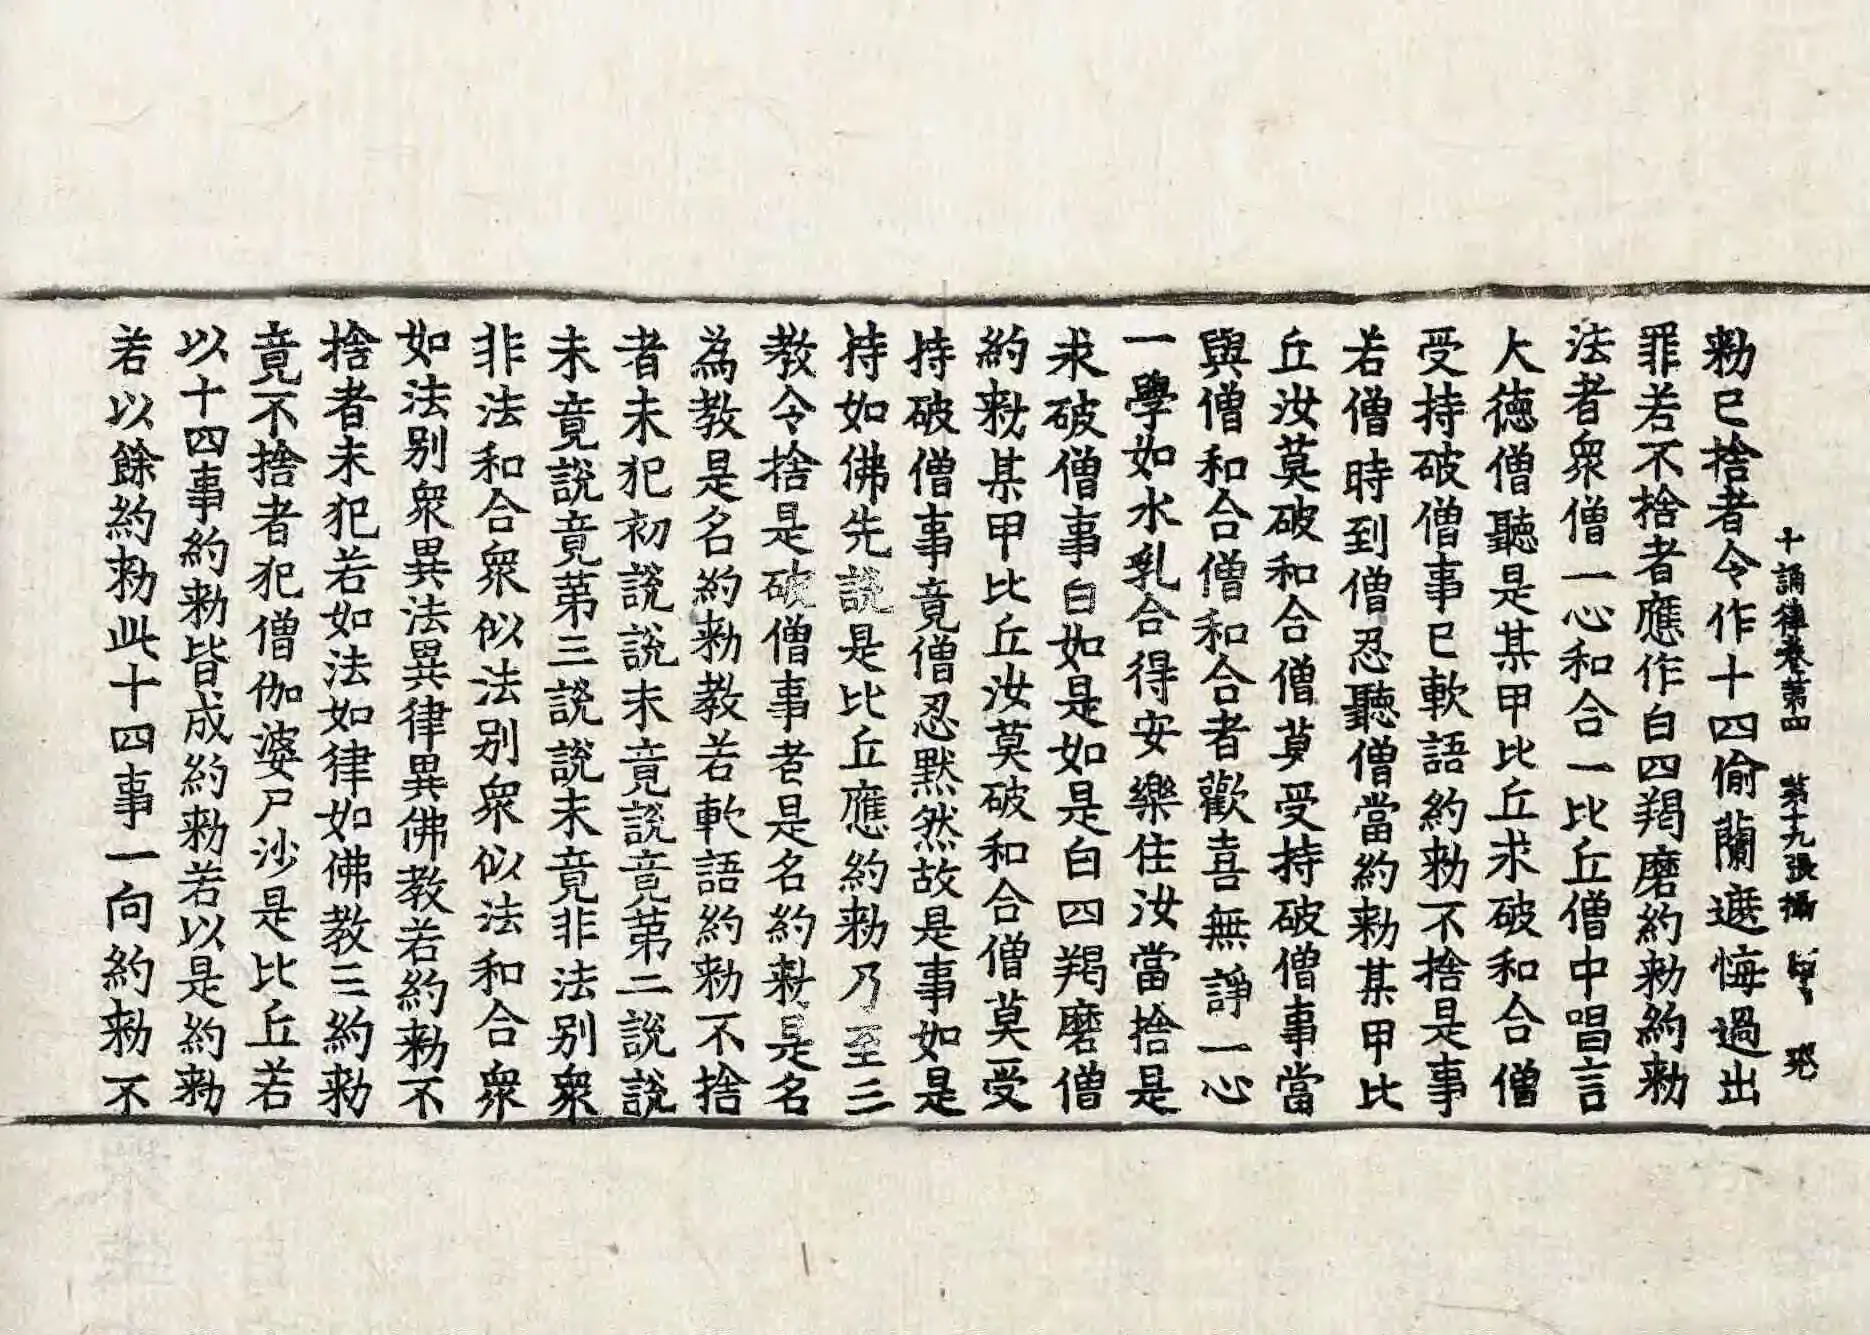 十誦律卷第四　第十九張攝
勑已捨者令作十四偷蘭遮悔過出
罪若不捨者應作白四羯磨約勑約勑
法者衆僧一心和合一比丘僧中唱言
大德僧聽是某甲比丘求破和合僧
受持破僧事已軟語約勑不捨是事
若僧時到僧忍聽僧當約勑某甲比
丘汝莫破和合僧莫受持破僧事當
與僧和合僧和合者歡喜無諍一心
一學如水乳合得安樂住汝當捨是
求破僧事白如是如是白四羯磨僧
約勑某甲比丘汝莫破和合僧莫受
持破僧事竟僧忍默然故是事如是
持如佛先說是比丘應約勑乃至三
教令捨是破僧事者是名約勑是名
為教是名約勑教若軟語約勑不捨
者未犯初說說未竟說竟第二說說
未竟說竟第三說說未竟非法別衆
非法和合衆似法別衆似法和合衆
如法別衆異法異律異佛教若約勑不
捨者未犯若如法如律如佛教三約勑
竟不捨者犯僧伽婆尸沙是比丘若
以十四事約勑皆成約勑若以是約勑
若以餘約勑此十四事一向約勑不